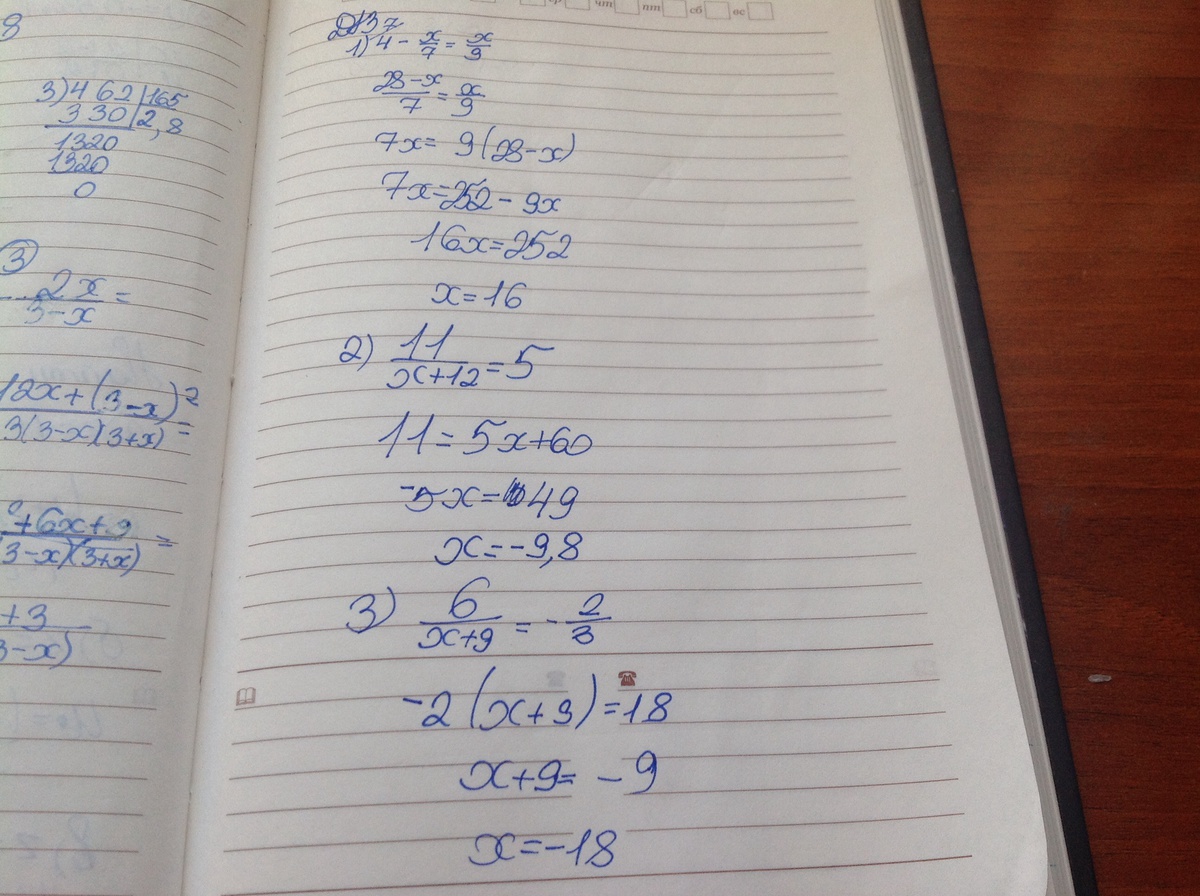 8
3) 462 | 165
330 | 2,8
1320
1320
0
3
2x/(3-x) =
12x+(3-x)²/3(3-x)(3+x) =
+6x+9/(3-x)(3+x) =
+3/3-x)
чт пт сб вс
Д/З 7
1) 4 - x/7 = x/9
(28-x)/7 = x/9
7x = 9(28-x)
7x = 252 - 9x
16x = 252
x = 16
2) 11/(x+12) = 5
11 = 5x+60
-5x = 49
x = -9,8
3) 6/(x+9) = -2/3
-2(x+9) = 18
x+9 = -9
x = -18